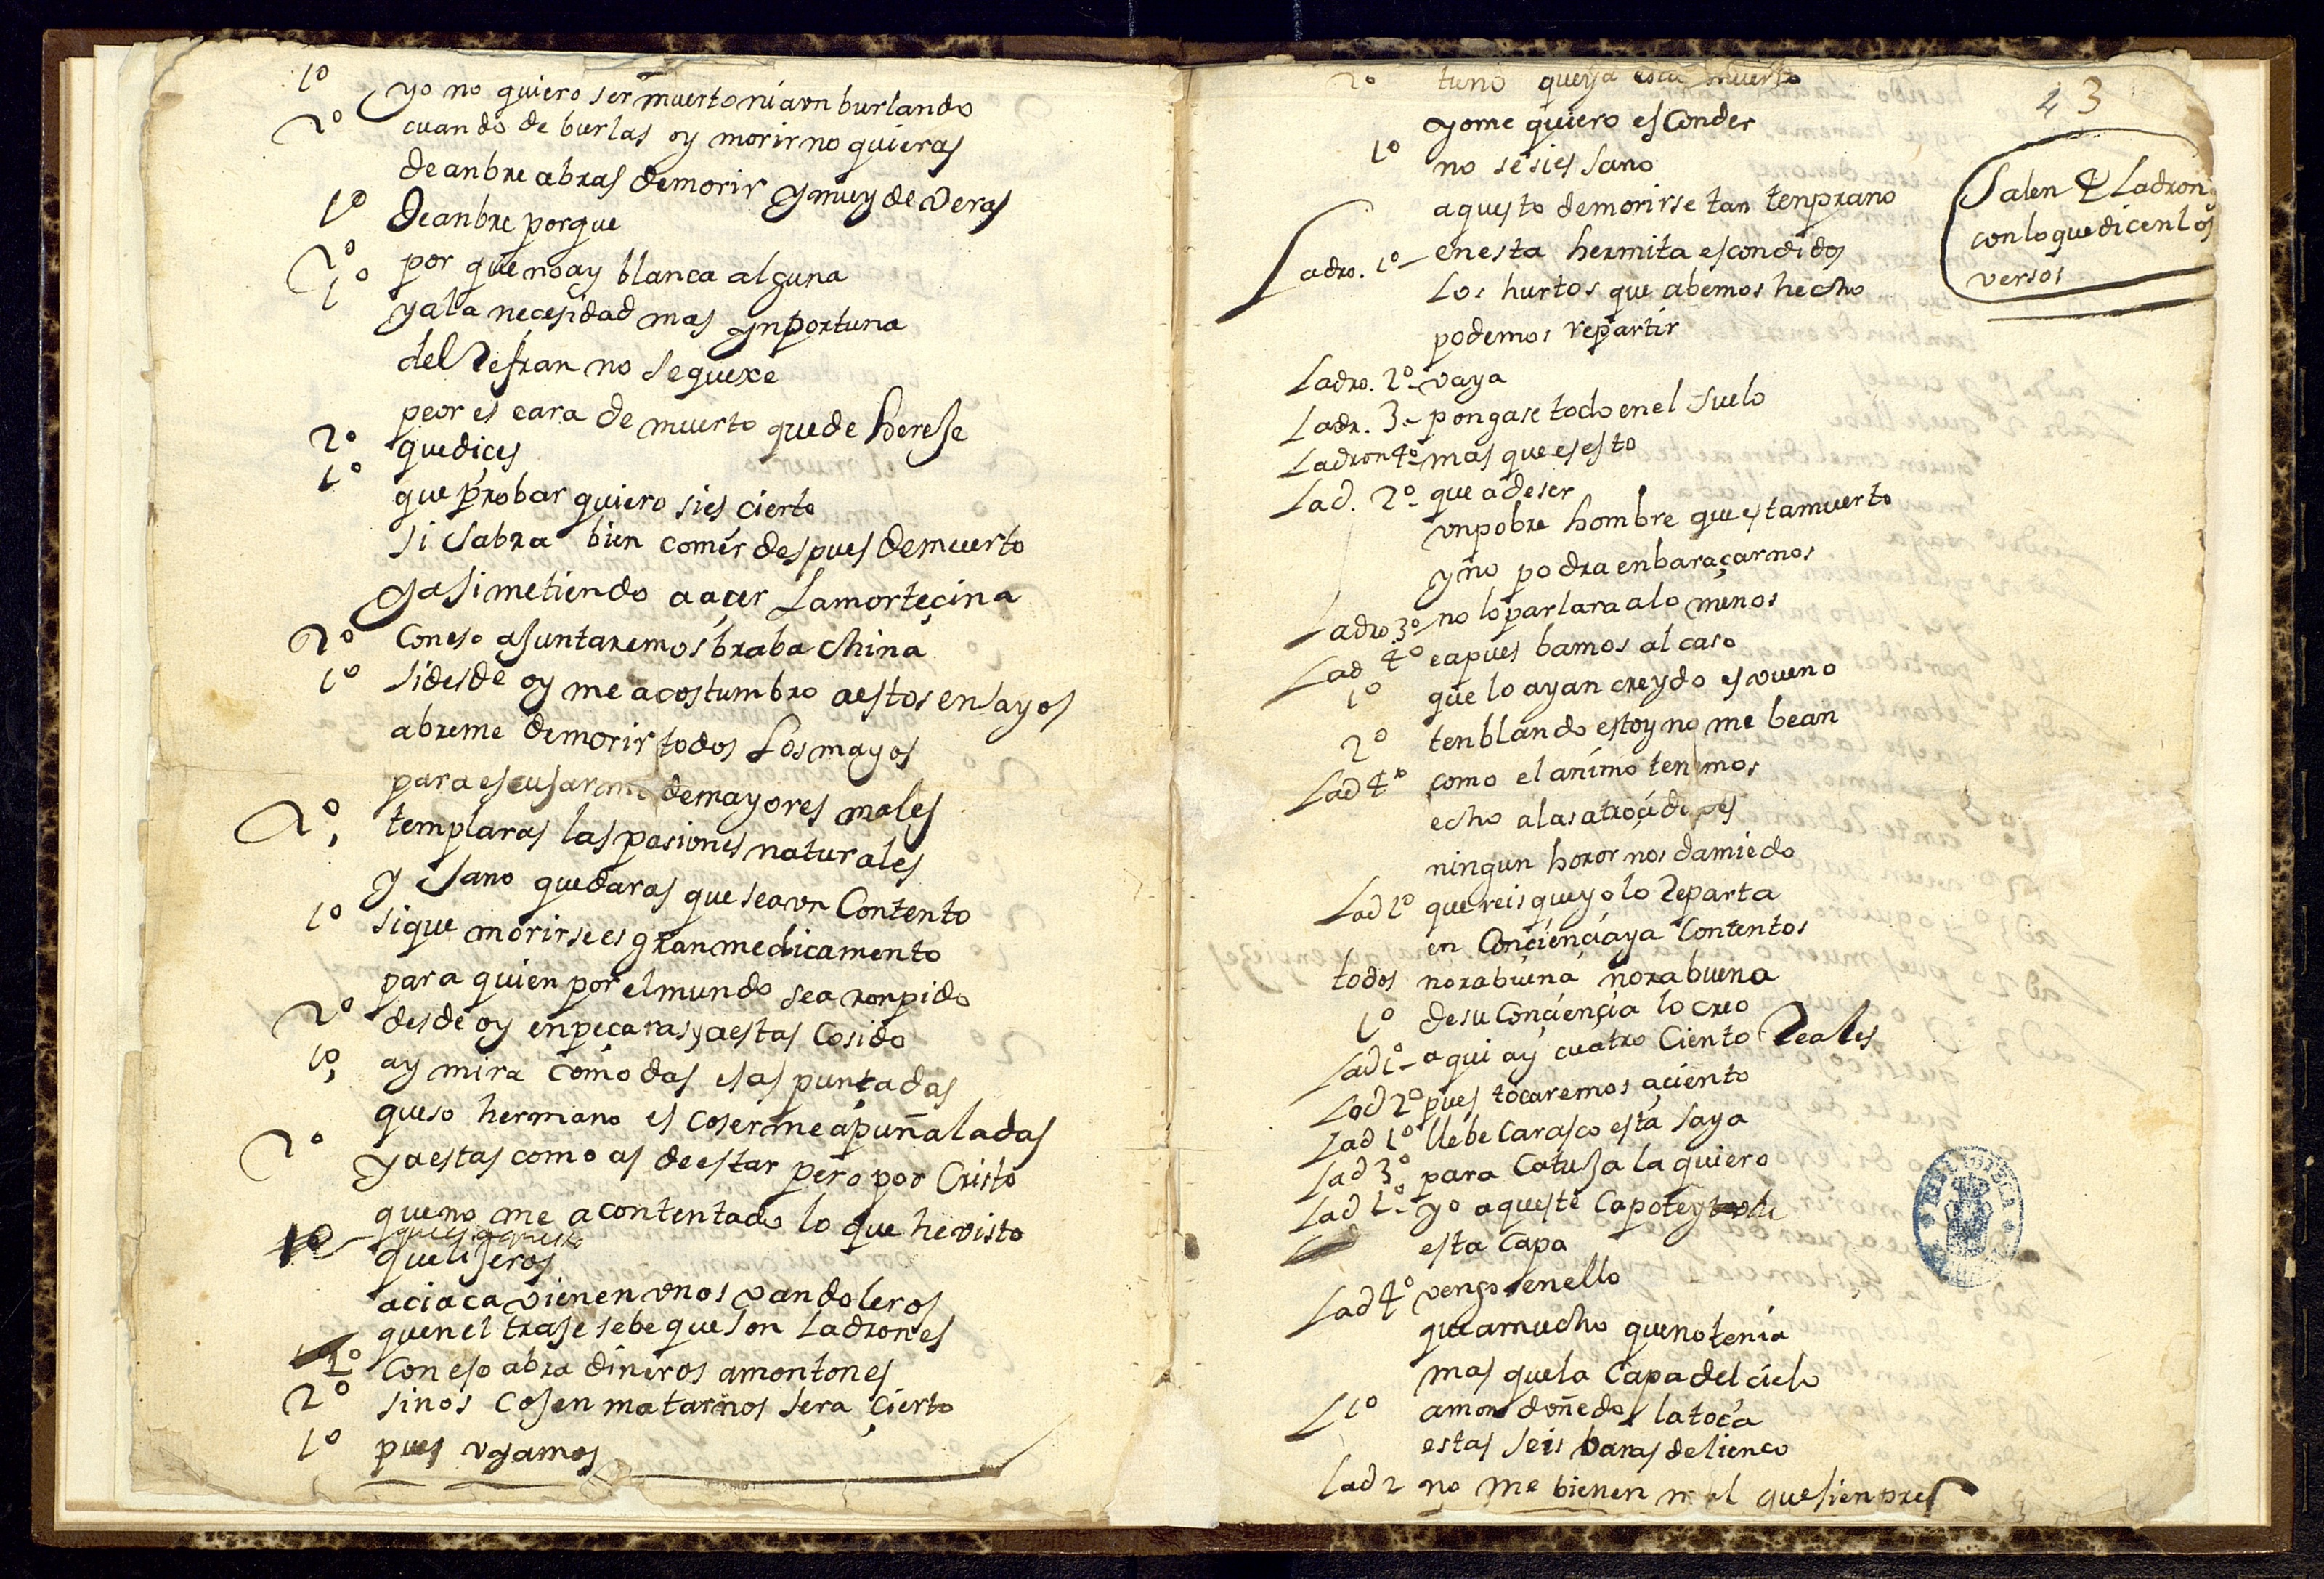 1º yo no quiero ser muerto ni avn burlando
2º cuando de burlas oy morir no quieras
de anbre abras demorir y muy de veras
1º de anbre porque
2º por que no ay blanca alguna
1º ya la necesidad mas ynportuna
del Refran no se quexe
peor es cara de muerto que de hereje
2º que dices
1º que probar quiero si es cierto
si sabra bien comer despues de muerto
y asi me tiendo a açer la morteçina
2º con eso ajuntaremos braba china
1º si desde oy me acostumbro a estos ensayos
abreme demorir todos los mayos
para escusarme de mayores males
2º templaras las pasiones naturales
y sano quedaras que sea vn contento
1º si que morirse es gran medicamento
para quien por el mundo sea ronpido
2º desde oy enpeçaras ya estas cosido
1º ay mira como das esas puntadas
queso hermano es coserme a puñaladas
2º ya estas como as de estar pero por Cristo
que no me a contentado lo que he visto
1º que es aquesto
que lijeros
acia ca vienen vnos vandoleros
quen el traje se be que son ladrones
1º con eso abra dineros a montones
2º si nos cojen matarnos sera çierto
1º pues vyamos
2º tuno que ya esta muerto
yo me quiero esconder
1º no se si es sano
aquesto de morirse tan tenprano
23
Salen 4 Ladrones
con lo que dicen los
versos
Ladro. 1º en esta hermita escondidos
los hurtos que abemos hecho
podemos repartir
Ladro. 2º vaya
Ladr. 3. pongase todo en el suelo
Ladron 4º mas que es esto
Lad. 2º que a de ser
vn pobre hombre que esta muerto
y no podra enbaraçarnos
Ladro 3º no lo parlara a lo menos
Lad 4º ea pues bamos al caso
1º que lo ayan creydo es vueno
2º tenblando estoy no me bean
Lad 4º como el animo tenemos
echo a las atroçidades
ningun horor nos da miedo
Lad 1º quereis que yo lo Reparta
en conçiençia ya contentos
todos norabuena norabuena
1º de su conçiençia lo creo
Lad 1º aqui ay cuatro ciento Reales
Lad 2º pues tocaremos a çiento
Lad 1º llebe Carasco esta saya
Lad 3º para Catuja la quiero
Lad 1º yo aqueste capote y
esta capa
Lad 4º vengo en ello
que a mucho que no tenia
mas que la capa del cielo
L 1º a mondoñedo la toca
estas seis baras de lienco
Lad 2 no me bienen mal que sienpre
BIBLIOTECA